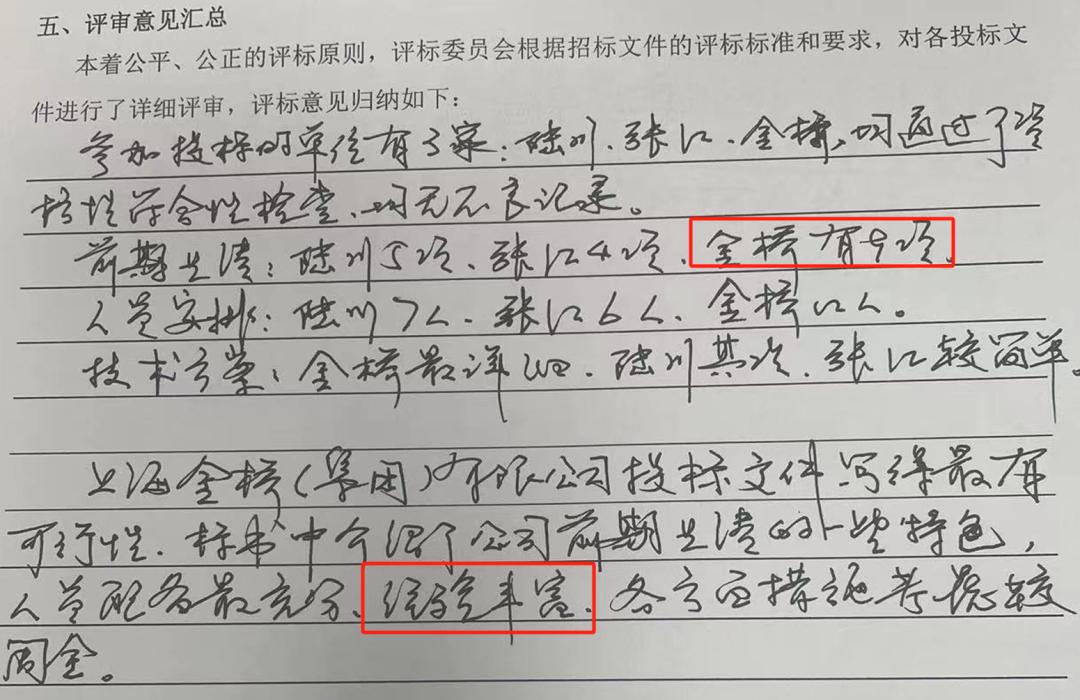 五、评审意见汇总
本着公平、公正的评标原则，评标委员会根据招标文件的评标标准和要求，对各投标文
件进行了详细评审，评标意见归纳如下：
参加投标的单位有3家：陆川、张江、金桥，均通过了资
格性符合性检查、均无不良记录。
前期业绩：陆川5项、张江4项、金桥有9项、
人员安排：陆川7人、张江6人、金桥12人。
技术方案：金桥最详细、陆川其次、张江较简单。
上海金桥(集团)有限公司投标文件写得最有
可行性、标书中介绍了公司前期业绩的一些特色，
人员配备最充分、经验丰富、各方面措施考虑较
周全。